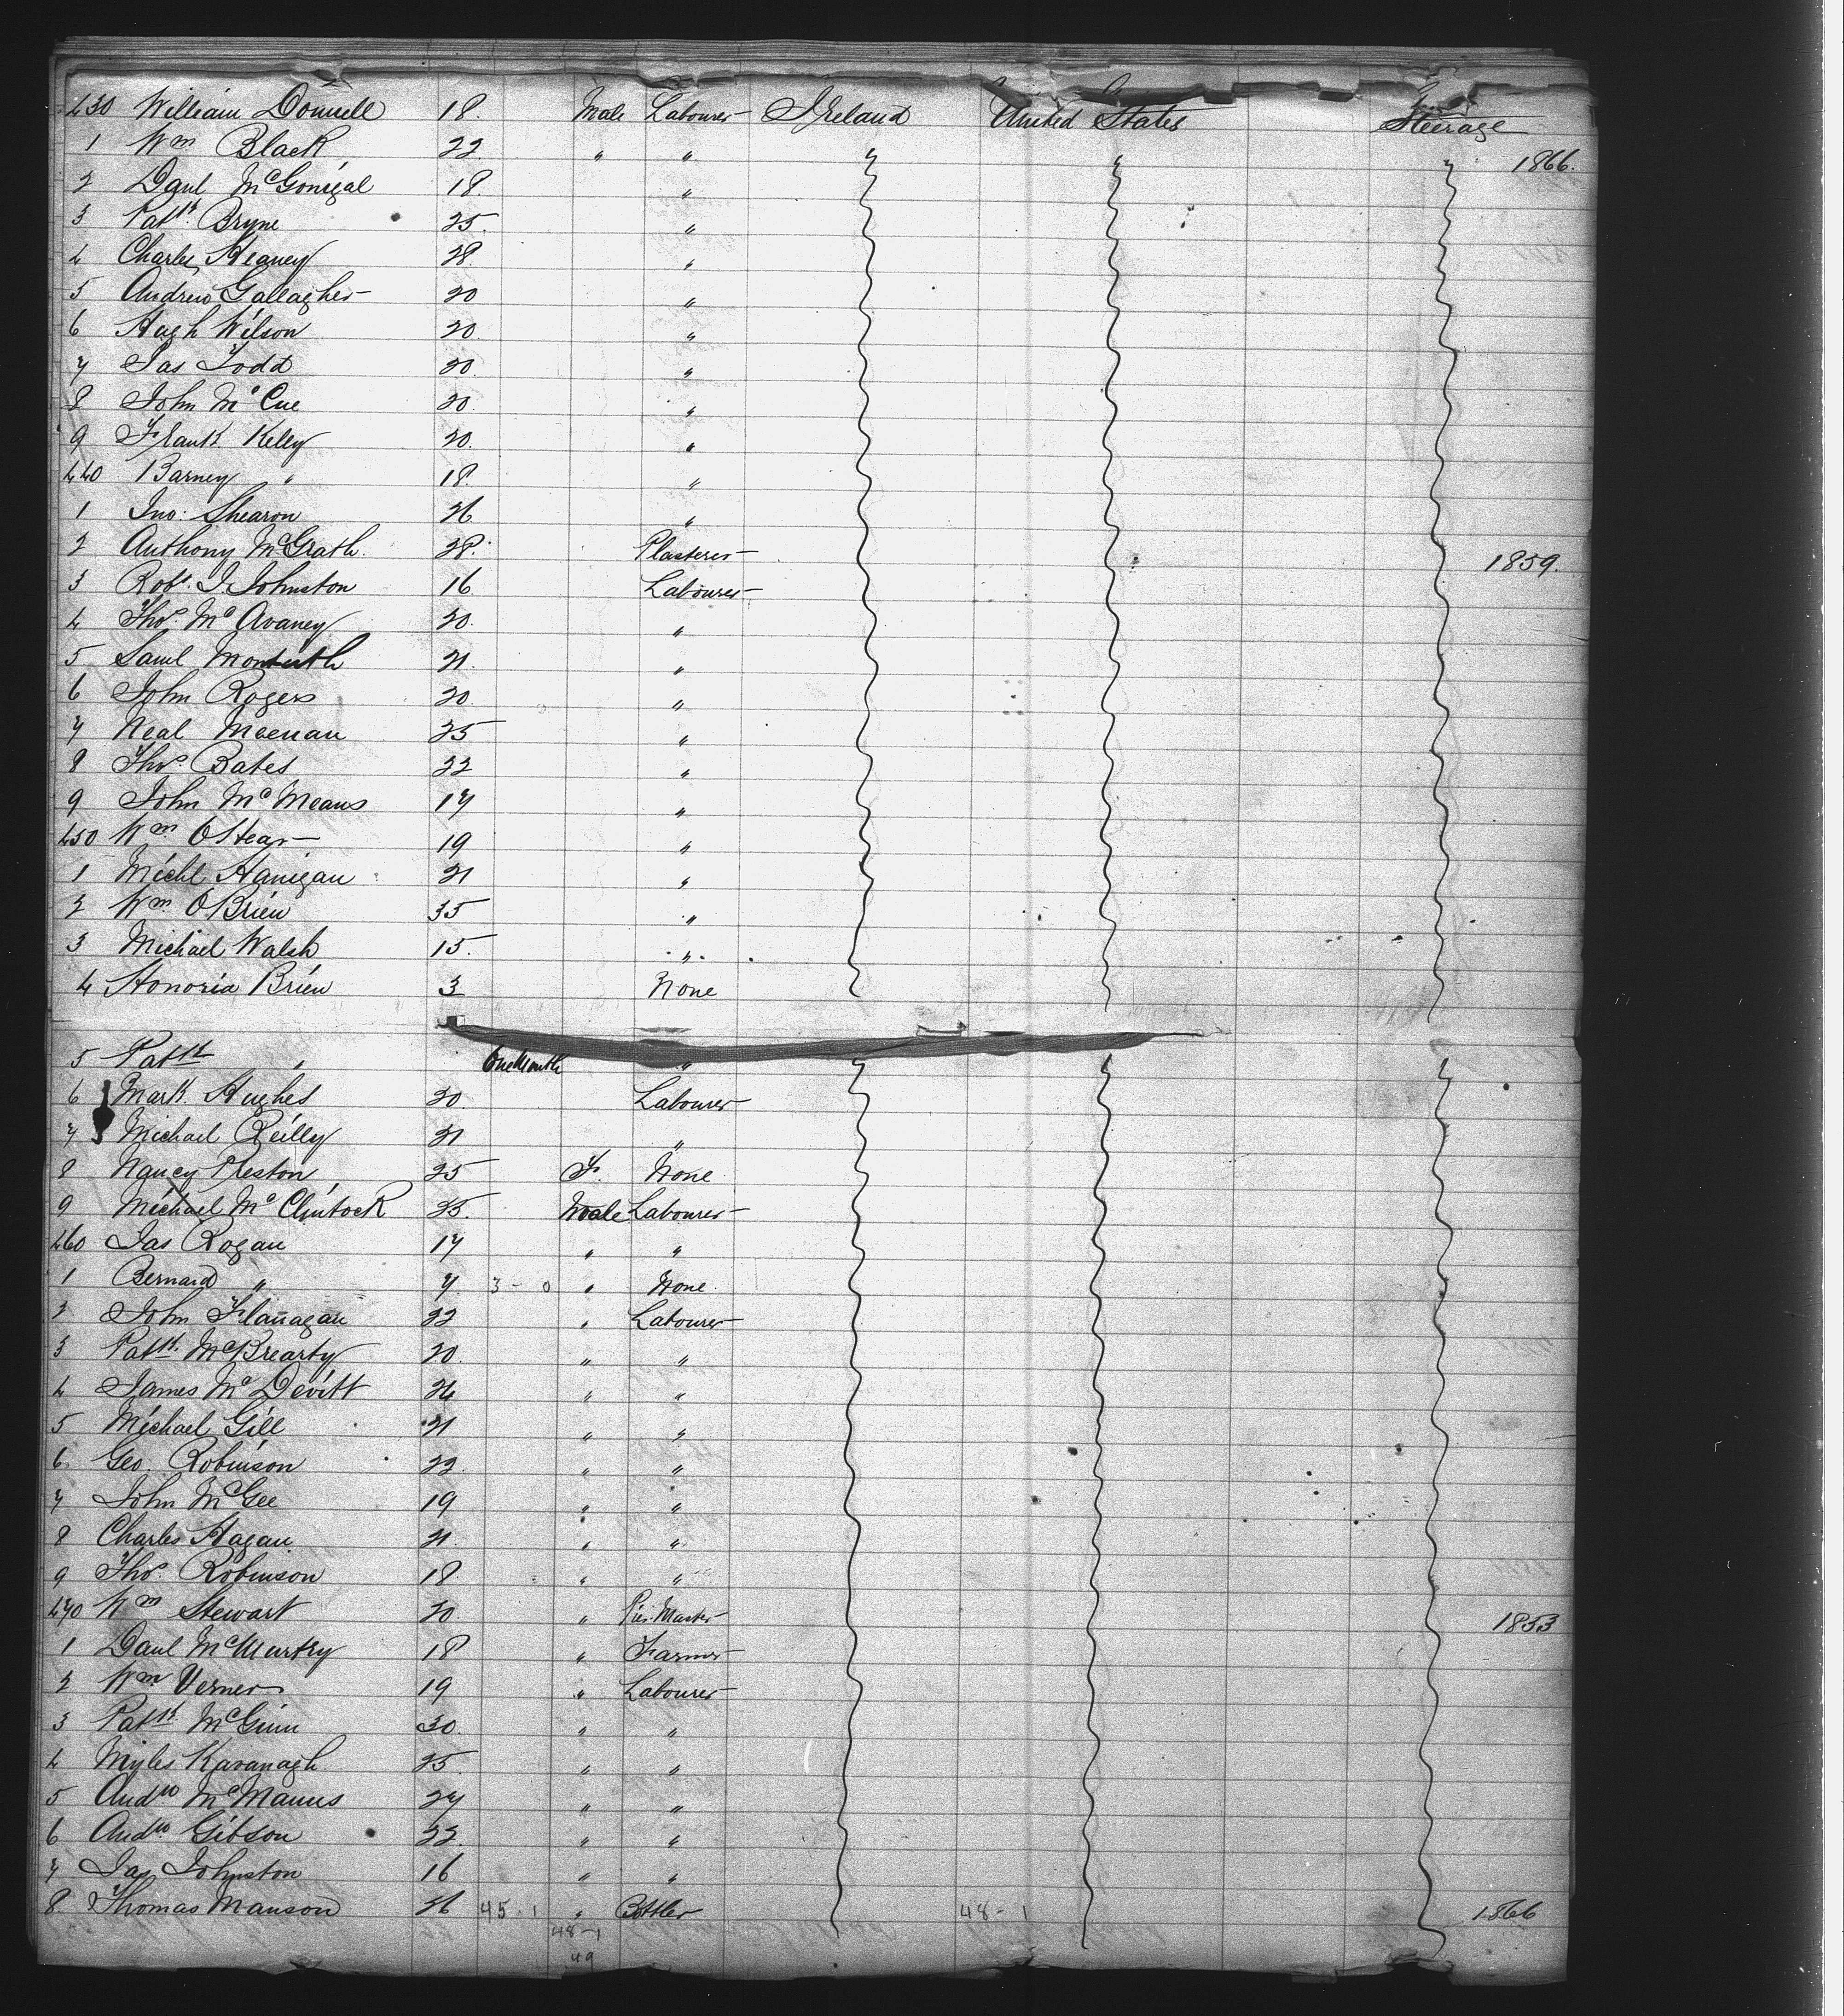 430 William Donnell 18. Male Labourer Ireland United States Steerage
1 Wm Black 22 " " 1866.
2 Danl McGonigal 18. "
3 Patk. Bryne 25. "
4 Charles Heaney 28. "
5 Andrew Gallagher 20 "
6 Hugh Wilson 20. "
7 Jas Todd 20. "
8 John McCue 20. "
9 Frank Keley 20. "
440 Barney " 18. "
1 Jno. Shearon 26 "
2 Anthony McGrath. 28. Plasterer 1859.
3 Robt. J. Johnston 16 Labourer
4 Thos. McAvaney 20. "
5 Saml Monteith 21. "
6 John Rogers 20 "
7 Neal Meenan 25 "
8 Thos. Bates 22 "
9 John McMeans 17 "
450 Wm OHear 19 "
1 Michl Hanigan 21 "
2 Wm. OBrien 35 "
3 Michael Walsh 15. "
4 Honoria Brien 3 None
5 Patk " One Month "
6 Mark Hughes 20. Labourer
7 Michael Reilly 21 "
8 Nancy Preston 25 F. None
9 Michael McClintock 25. Male Labourer
460 Jas Rogan 17 " "
1 Bernard " 7 3 - 0 " None.
2 John Flanagan 22 " Labourer
3 Patk. McBrearty 20. " "
4 James McDevitt 24 " "
5 Michael Gill 21 " "
6. Geo. Robinson 22. " "
7 John McGee 19 " "
8 Charles Hagan 21. " "
9 Thos. Robinson 18 " "
470 Wm Stewart 20. " 1853
1 Danl McMurtry 18 " Farmer
2 Wm Verner 19 " Labourer
3 Patk McGinn 30. " "
4 Myles Kavanagh 25. " "
5 Andw McManus 27 " "
6 Andw. Gibson 22. " "
7 Jas Johnston 16 " "
8 Thomas Manson 26 45-1 " Bottler 48-1 1866
48-1
49